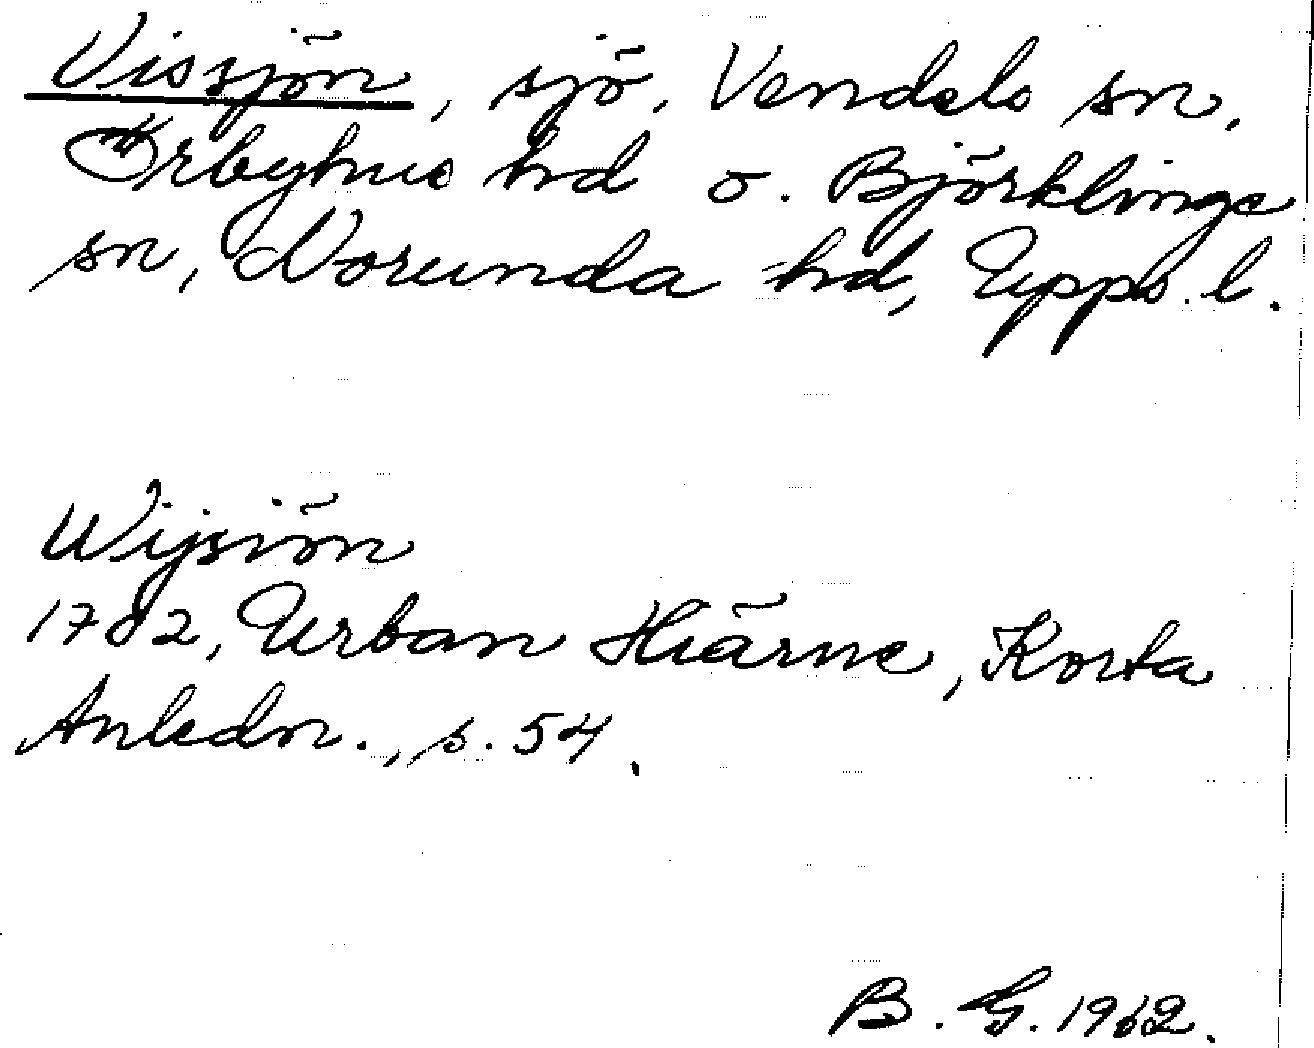 Vissjön, sjö, Vendels sn,
Örbyhus hd o. Björklinge
sn, Norunda hd, Upps. l.
Wijsiön
1702, Urban Hiärne, Korta
Anledn., s. 54.
B. G. 1962.